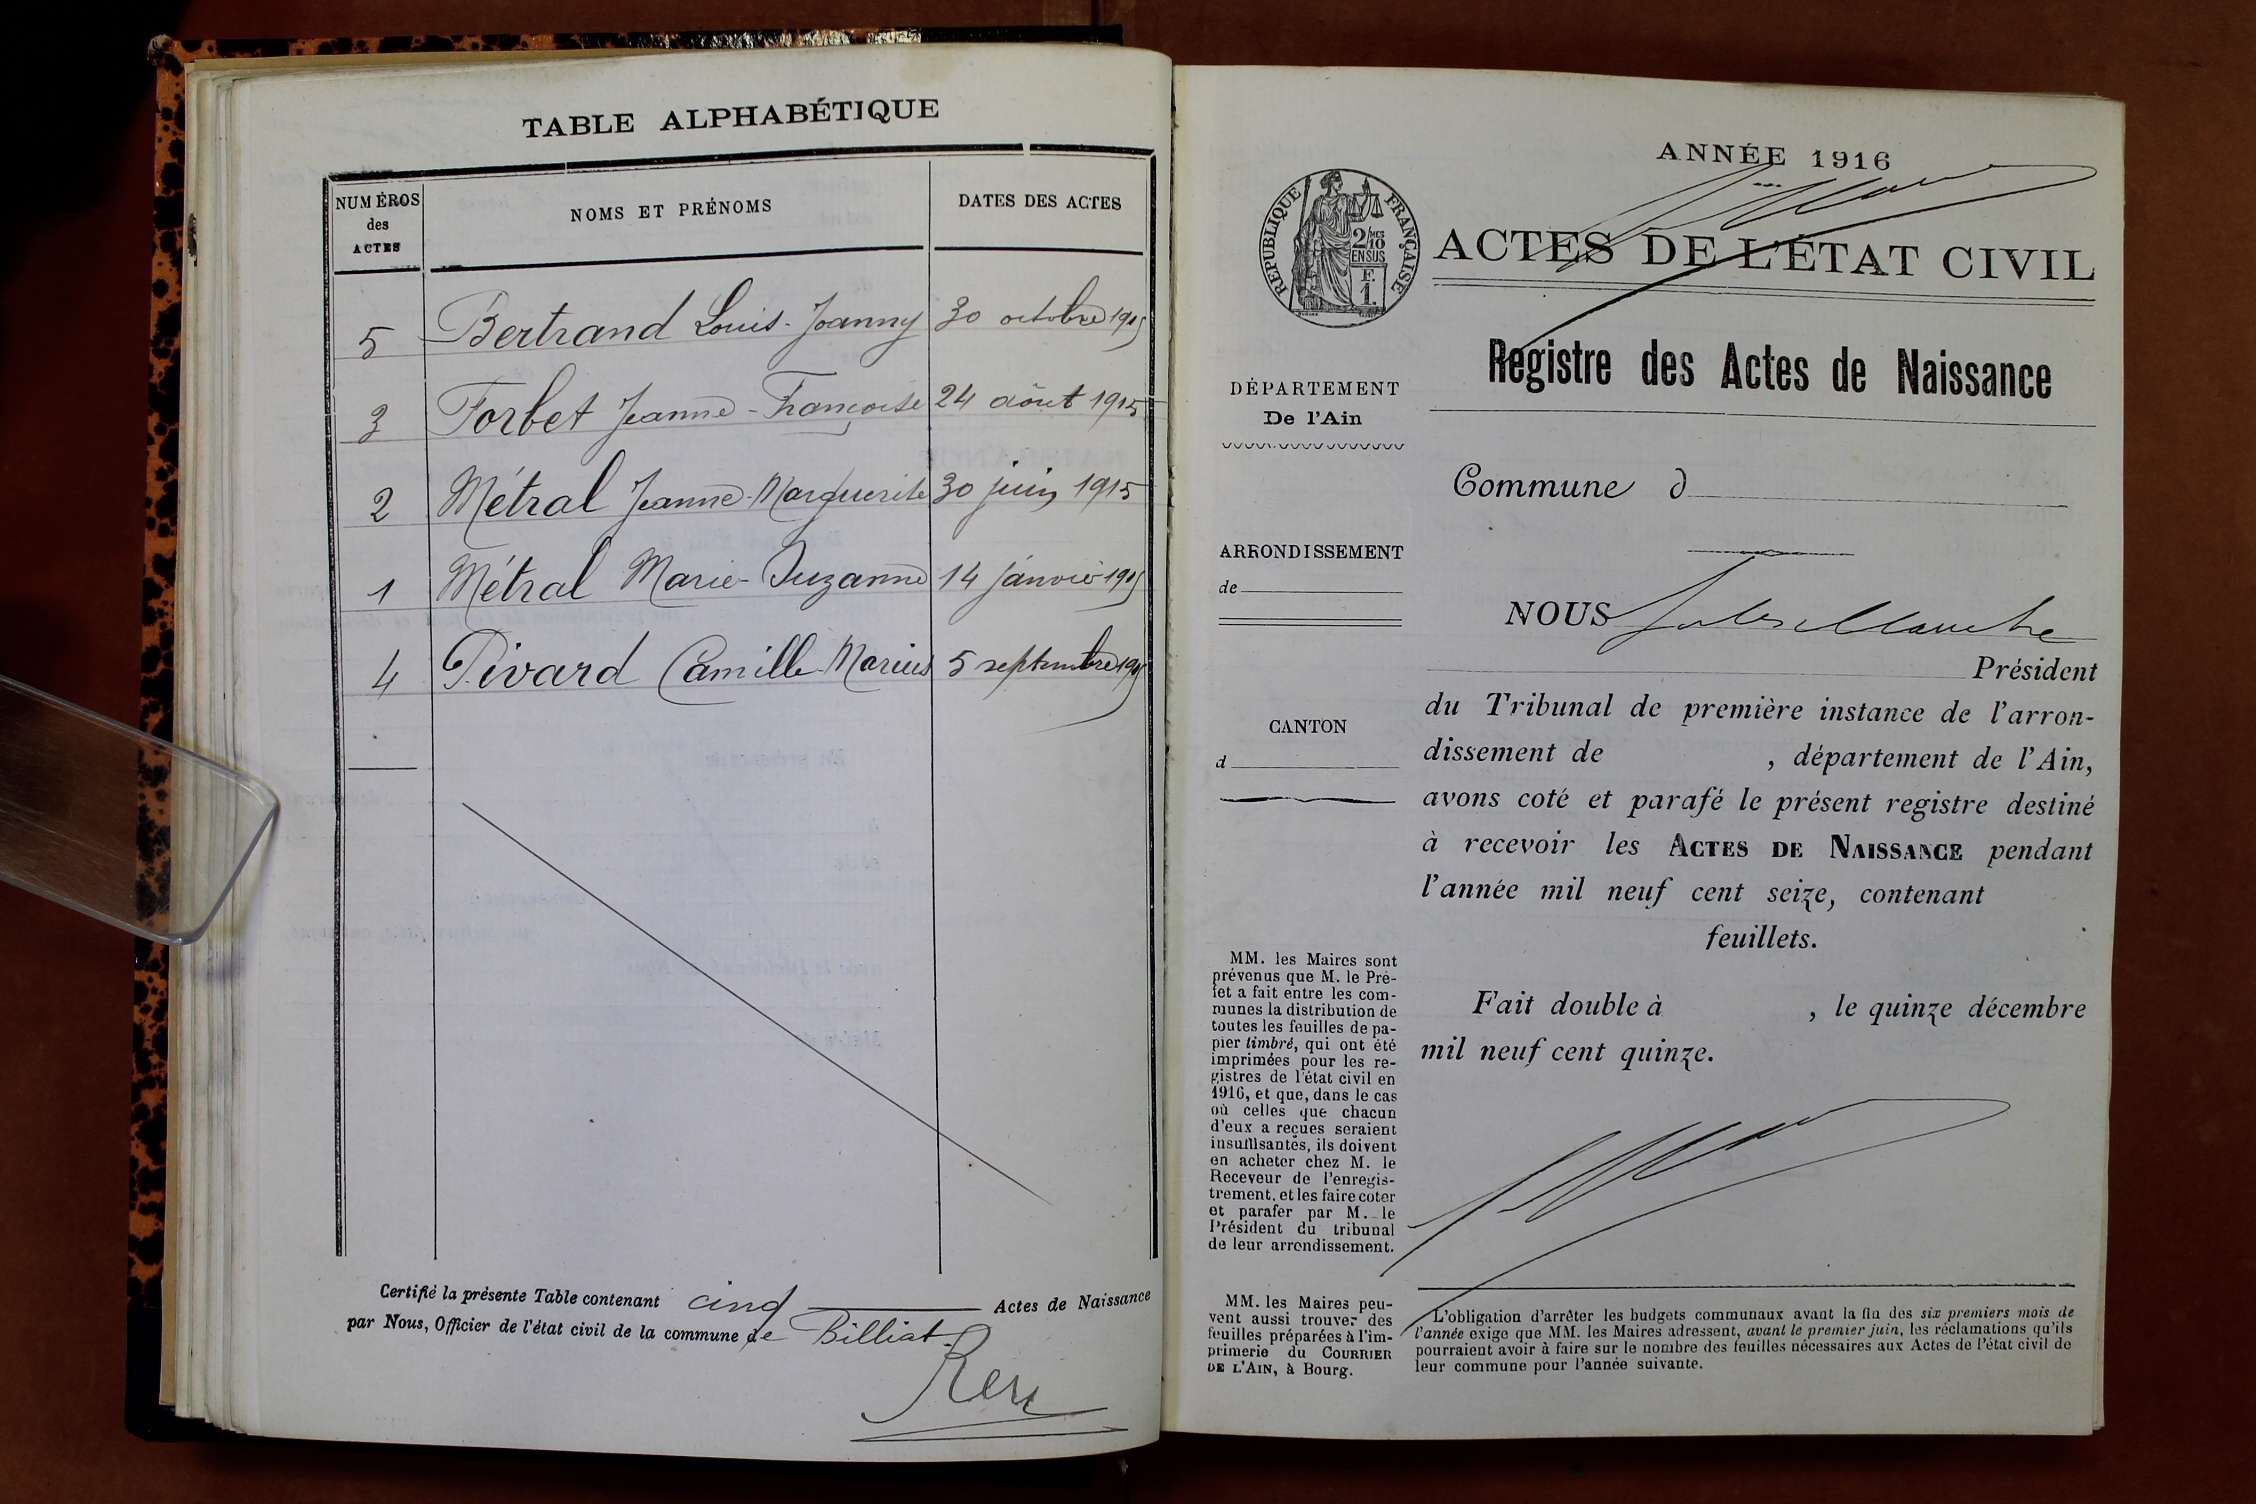 TABLE ALPHABÉTIQUE
NUMÉROS
des
ACTES
NOMS ET PRÉNOMS
DATES DES ACTES
5 Bertrand Louis-Joanny 30 octobre 1915
3 Forbet Jeanne-Françoise 24 août 1915
2 Métral Jeanne-Marguerite 30 juin 1915
1 Métral Marie-Suzanne 14 janvier 1915
4 Pivard Camille Marius 5 septembre 1915
Certifié la présente Table contenant cinq Actes de Naissance
par Nous, Officier de l'état civil de la commune de Billiat
ANNÉE 1916
RÉPUBLIQUE FRANÇAISE
2/10 MES
EN SUS
F.
1.
ACTES DE L'ÉTAT CIVIL
Registre des Actes de Naissance
DÉPARTEMENT
De l'Ain
Commune d
ARRONDISSEMENT
de
CANTON
d
NOUS Jules
Président
du Tribunal de première instance de l'arron-
dissement de , département de l'Ain,
avons coté et parafé le présent registre destiné
à recevoir les ACTES DE NAISSANCE pendant
l'année mil neuf cent seize, contenant
feuillets.
Fait double à , le quinze décembre
mil neuf cent quinze.
MM. les Maires sont
prévenus que M. le Pré-
fet a fait entre les com-
munes la distribution de
toutes les feuilles de pa-
pier timbré, qui ont été
imprimées pour les re-
gistres de l'état civil en
1916, et que, dans le cas
où celles que chacun
d'eux a reçues seraient
insuffisantes, ils doivent
en acheter chez M. le
Receveur de l'enregis-
trement, et les faire coter
et parafer par M. le
Président du tribunal
de leur arrondissement.
MM. les Maires peu-
vent aussi trouver des
feuilles préparées à l'im-
primerie du COURRIER
DE L'AIN, à Bourg.
L'obligation d'arrêter les budgets communaux avant la fin des six premiers mois de
l'année exige que MM. les Maires adressent, avant le premier juin, les réclamations qu'ils
pourraient avoir à faire sur le nombre des feuilles nécessaires aux Actes de l'état civil de
leur commune pour l'année suivante.